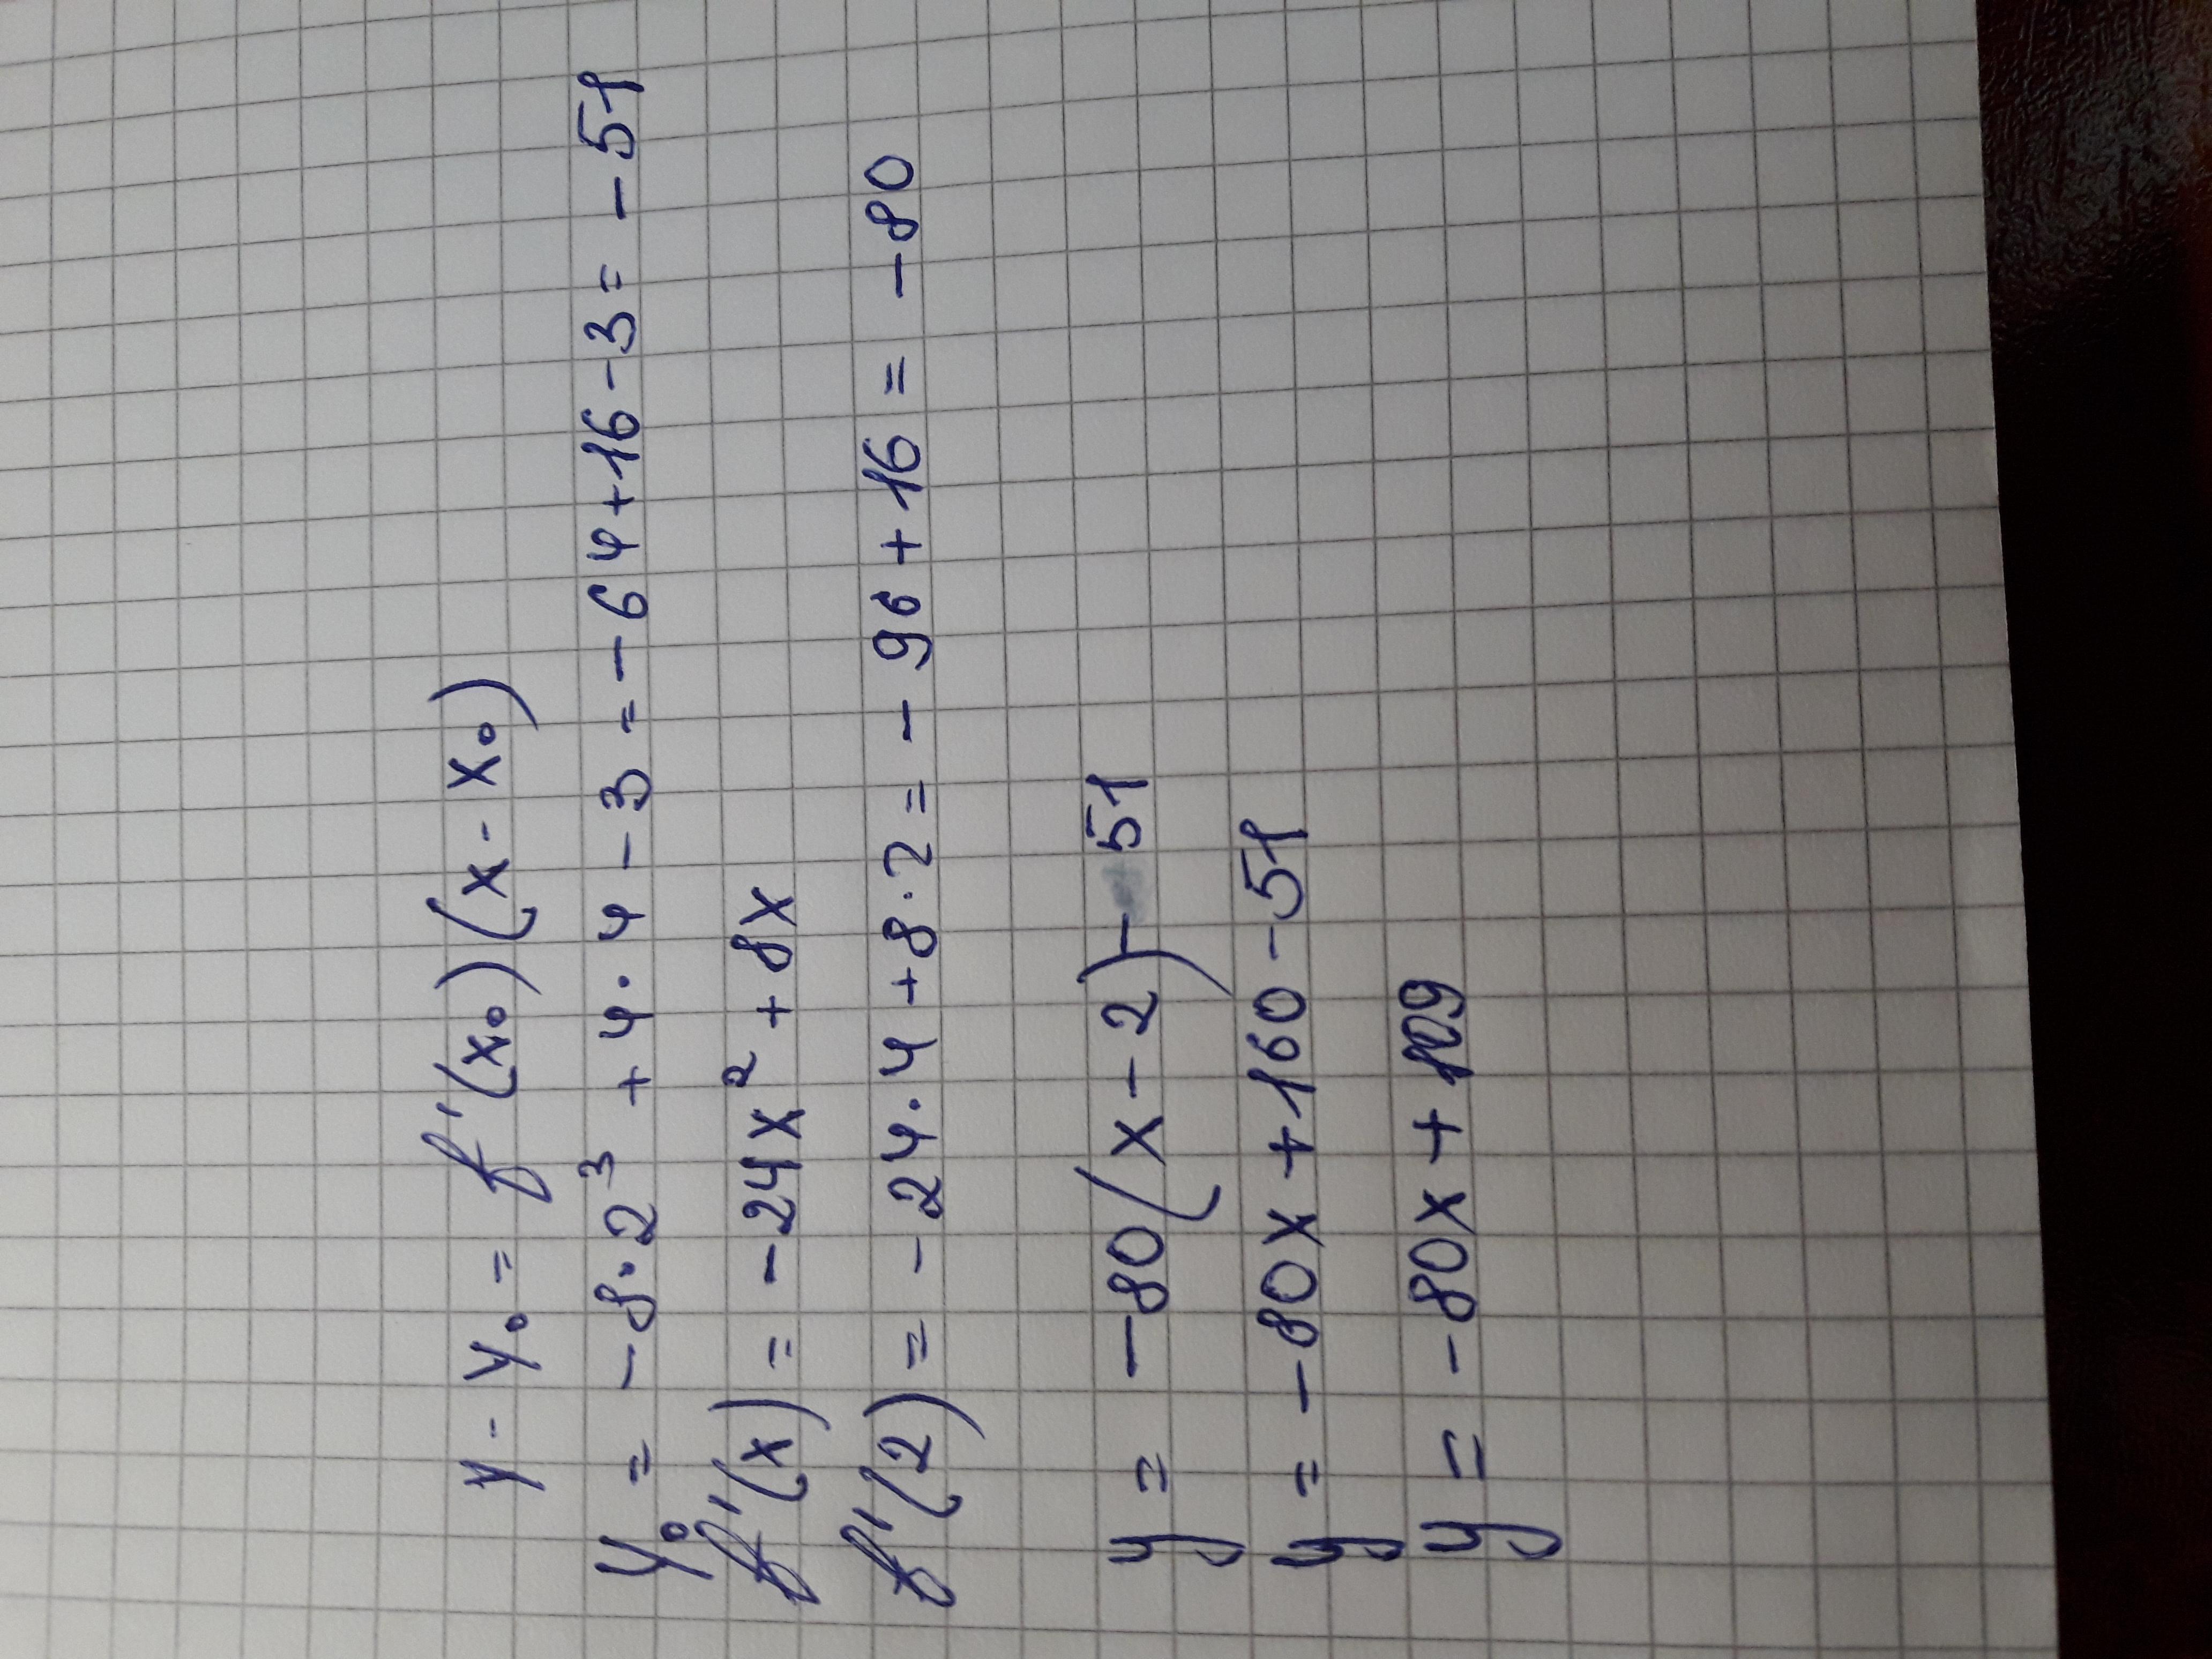 y - y₀ = f'(x₀)(x - x₀)
y₀ = -8·2³ + 4·4 - 3 = -64+16-3 = -51
f'(x) = -24x² + 8x
f'(2) = -24·4 +8·2 = -96+16 = -80
y = -80(x-2) - 51
y = -80x +160-51
y = -80x + 109